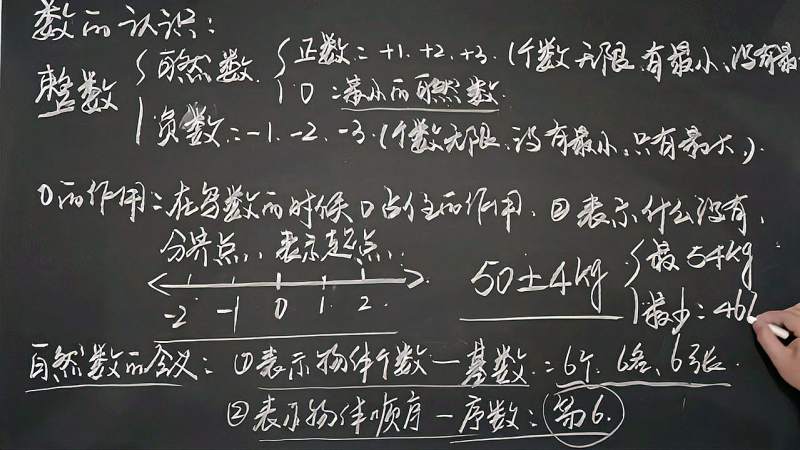 数的认识:
整数 { 自然数 { 正数: +1. +2. +3. (个数无限.有最小、没有最
0:最小的自然数
负数:-1、-2、-3. (个数无限.没有最小.只有最大,).
0的作用:在写数的时候0占位的作用.②表示什么没有,
分界点,,表示起点,
-2 -1 0 1 2
50±4kg { 最 54kg
最少: 46k
自然数的含义: ①表示物体个数—基数:6个. 6名、6张.
②表示物体顺序—序数:第6.